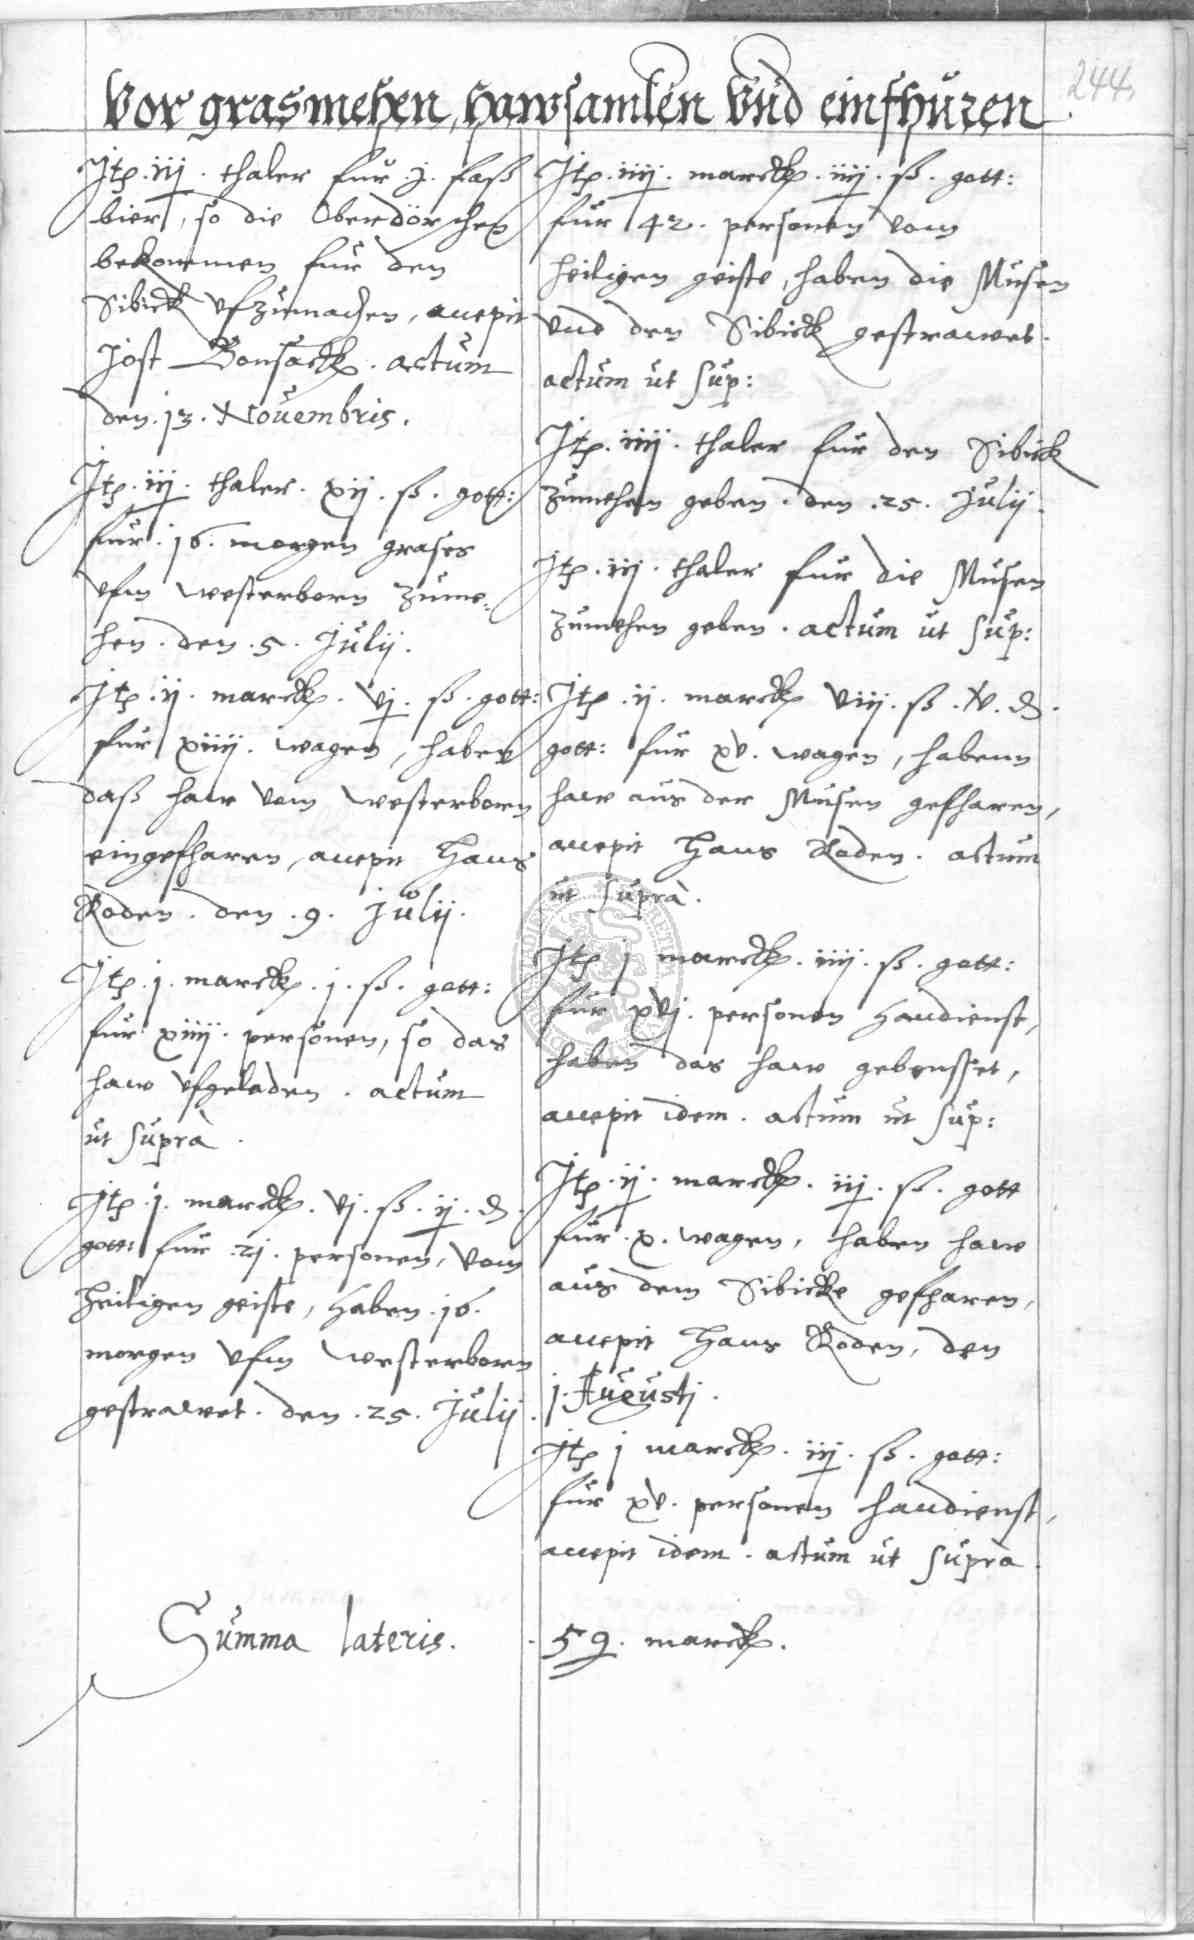 Vor grasmehen, hawsamlen Vnd einfhuren
244.
Itp. iij. thaler fur .j. faß
bier, so die Oberdörscher
bekommen fur den
Sibick vfzumachen, accepit
Jost Bonsack. actum
den .13. Nouembris.
Itp. iij. thaler. xij. ß. gott:
fur .16. morgen grases
vfm westerborn zume„
hen. den .5. Julij.
Itp. ij. marck. vj. ß. gott:
fur xiiij. wagen, haben
daß haw vom westerborn
eingefharen, accepit Hans
Roden. den .9. Julij.
Itp. j. marck. j. ß. gott:
fur xiiij. personen, so das
haw vfgeladen. actum
ut suprà.
Itp. j. marck. vj. ß. ij. d.
gott: fur .21. personen, vom
heiligen geiste, haben .16.
morgen vfm westerborn
gestrawet. den .25. Julij.
Itp. iiij. marck. iiij. ß. gott:
fur 42. personen vom
heiligen geiste, haben die Musen
vnd den Sibick gestrawet.
actum ut sup:
Itp. iiij. thaler fur den Sibick
zumehen geben. den .25. Julij.
Itp. iij. thaler fur die Musen
zumehen geben. actum ut sup:
Itp. ij. marck viij. ß. v. d.
gott: fur xv. wagen, habenn
haw aus der Musen gefharen,
accepit Hans Roden. actum
ut suprà.
Itp j marck. iiij. ß. gott:
fur xvj. personen handienst,
haben das haw gebensset,
accepit idem. actum ut sup:
Itp. ij. marck. iij. ß. gott
fur .x. wagen, haben haw
aus dem Sibicke gefharen,
accepit Hans Roden, den
j. Augustj.
Itp j marck. iij. ß. gott:
fur xv. personen handienst,
accepit idem. actum ut suprà.
Summa lateris. . 59. marck.